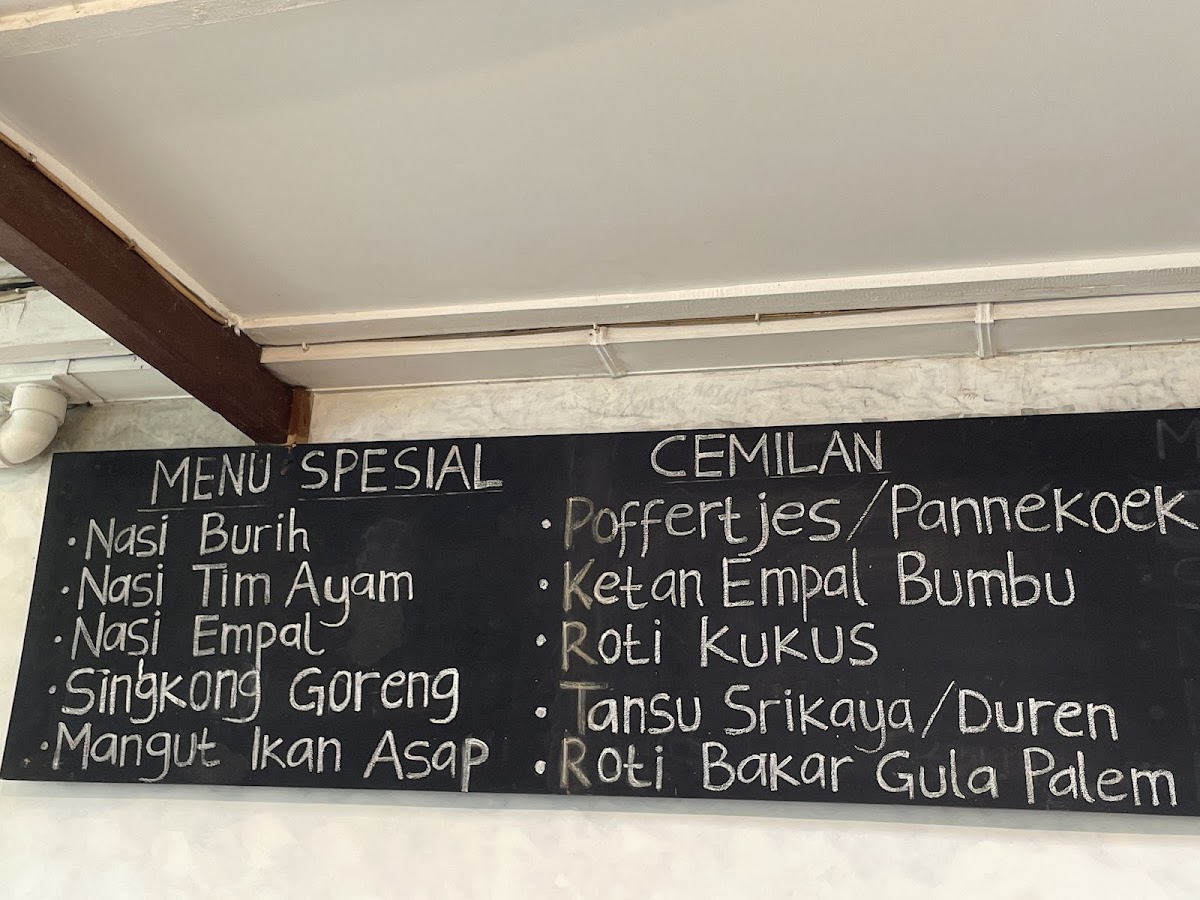 MENU SPESIAL
• Nasi Burih
• Nasi Tim Ayam
• Nasi Empal
• Singkong Goreng
• Mangut Ikan Asap
CEMILAN
• Poffertjes/Pannekoek
• Ketan Empal Bumbu
• Roti Kukus
• Tansu Srikaya/Duren
• Roti Bakar Gula Palem